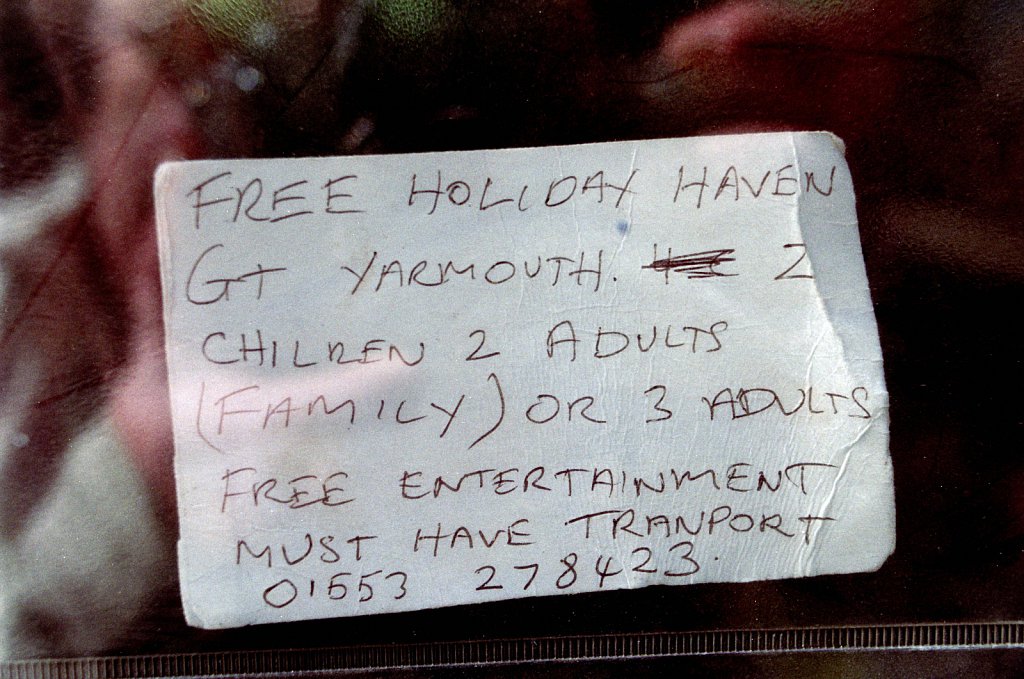 FREE HOLIDAY HAVEN
Gt YARMOUTH. 2
CHILREN 2 ADULTS
(FAMILY) OR 3 ADULTS
FREE ENTERTAINMENT
MUST HAVE TRANPORT
01553 278423.